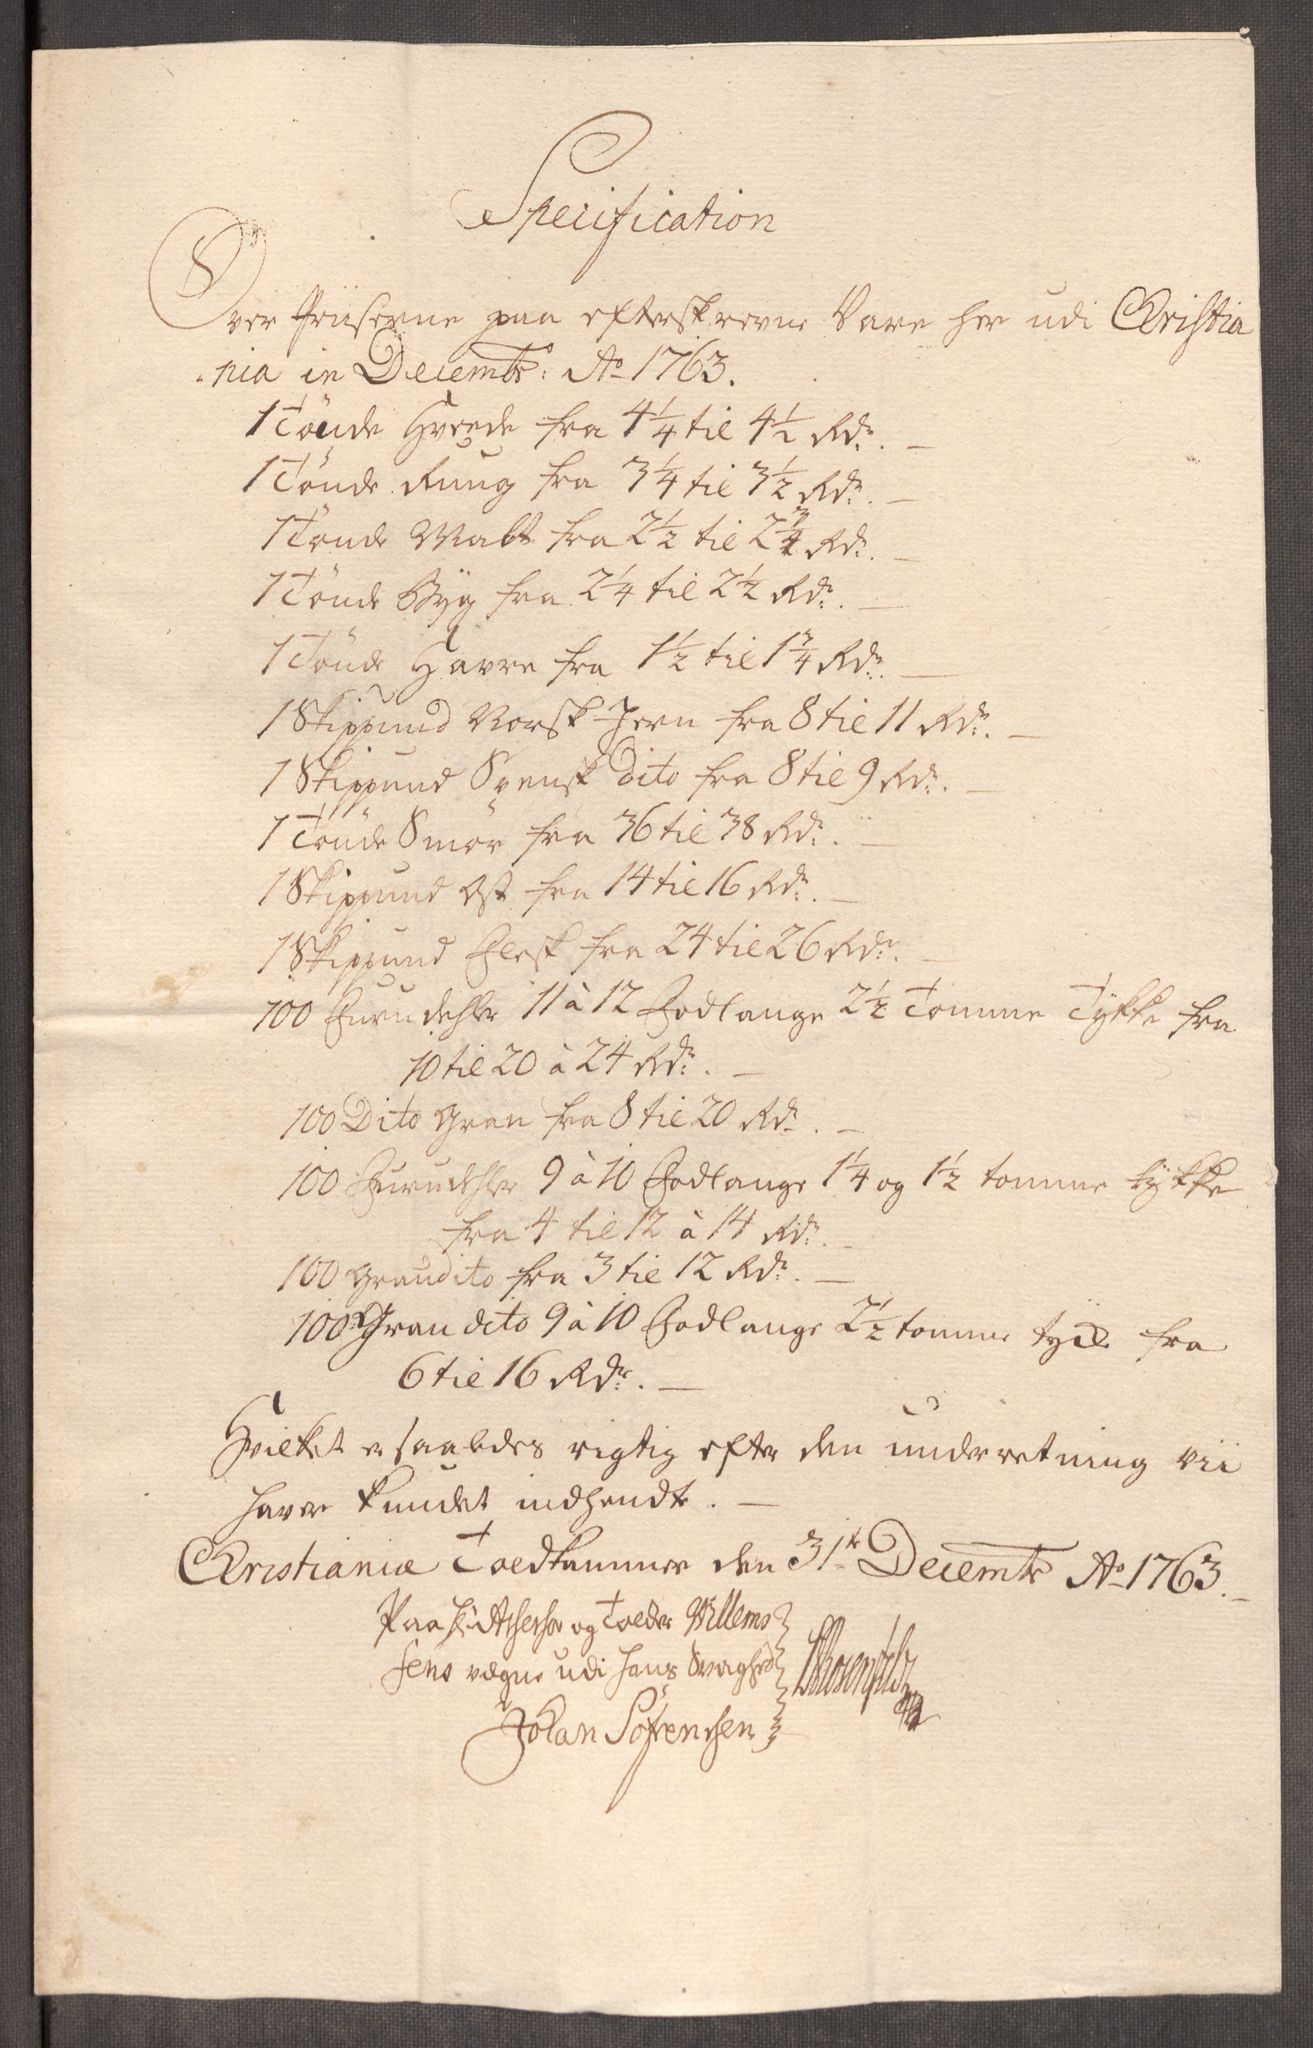 Specification
Over Priiserne paa efterskrevne Vare her udi Christia
nia in Decembr: Ao 1763.
1 Tönde Hvede fra 4 1/4 til 4 1/2 Rdr. —
1 Tönde Rug fra 3 1/4 til 3 1/2 Rdr. —
1 Tönde Malt fra 2 1/2 til 2 3/4 Rdr. —
1 Tönde Byg fra 2 1/4 til 2 1/2 Rdr. —
1 Tönde Havre fra 1 1/2 til 1 3/4 Rdr. —
1 Skippund Norsk Jern fra 8 til 11 Rdr. —
1 Skippund Svensk dito fra 8 til 9 Rdr. —
1 Tönde Smör fra 36 til 38 Rdr. —
1 Skippund Ost fra 14 til 16 Rdr. —
1 Skippund Flesk fra 24 til 26 Rdr. —
100 Furudehler 11 à 12 Fodlange 2 1/2 Tomme Tykke fra
10 til 20 à 24 Rdr. —
100 Dito Gran fra 8 til 20 Rdr. —
100 Furudehler 9 à 10 Fodlange 1 1/4 og 1 1/2 tomme tykke
fra 4 til 12 à 14 Rdr. —
100 Gran dito fra 3 til 12 Rdr. —
100 Gran dito 9 à 10 Fodlange 2 1/2 tomme fra
6 til 16 Rdr. —
Hvilket er saaledes rigtig efter den underretning vii
haver kundet indhendte. —
Christianiæ Toldkammer den 31te Decembr Ao 1763. —
Paa og Tolder Willem
sens vegne udi hans Svaghed
Johan Sörensen